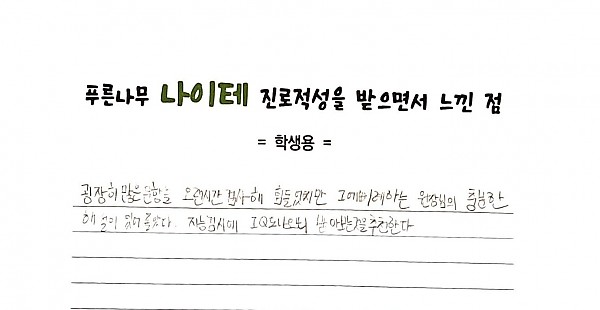 푸른나무 나이테 진로적성을 받으면서 느낀 점
= 학생용 =
굉장히 많은 문항을 오랜시간 검사해 힘들었지만 그에비례하는 원장님의 충분한
해설이 있어 좋았다. 지능검사에 IQ도나오니 받아보는걸추천한다